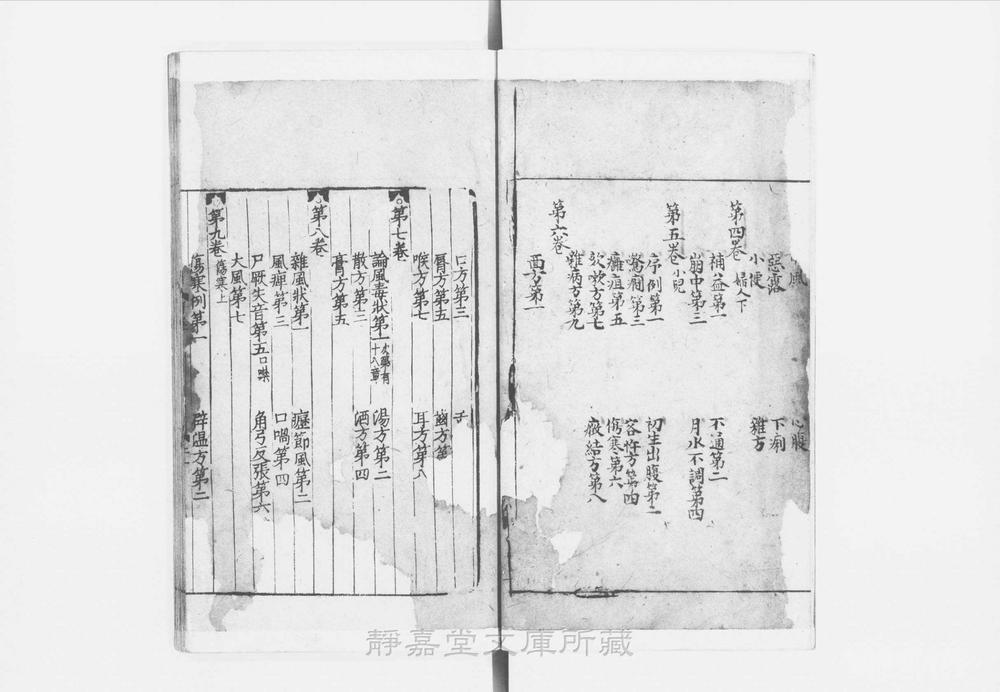 風　心腹
惡露　下痢
小便　雜方
第四卷　婦人下
補益第一　不通第二
崩中第三　月水不調第四
第五卷　小兒
序例第一　初生出腹第二
驚癇第三　客忤方第四
癰疽第五　傷寒第六
欬嗽方第七　癥結方第八
雜病方第九
第六卷
面方第一
口方第三　舌
脣方第五　齒方第
喉方第七　耳方第八
第七卷
論風毒狀第一　次第有十八章　湯方第二
散方第三　酒方第四
膏方第五
第八卷
雜風狀第一　癧節風第二
風痺第三　口喎第四
尸厥失音第五　口噤　角弓反張第六
大風第七
第九卷　傷寒上
傷寒例第一　辟温方第二
靜嘉堂文庫所藏